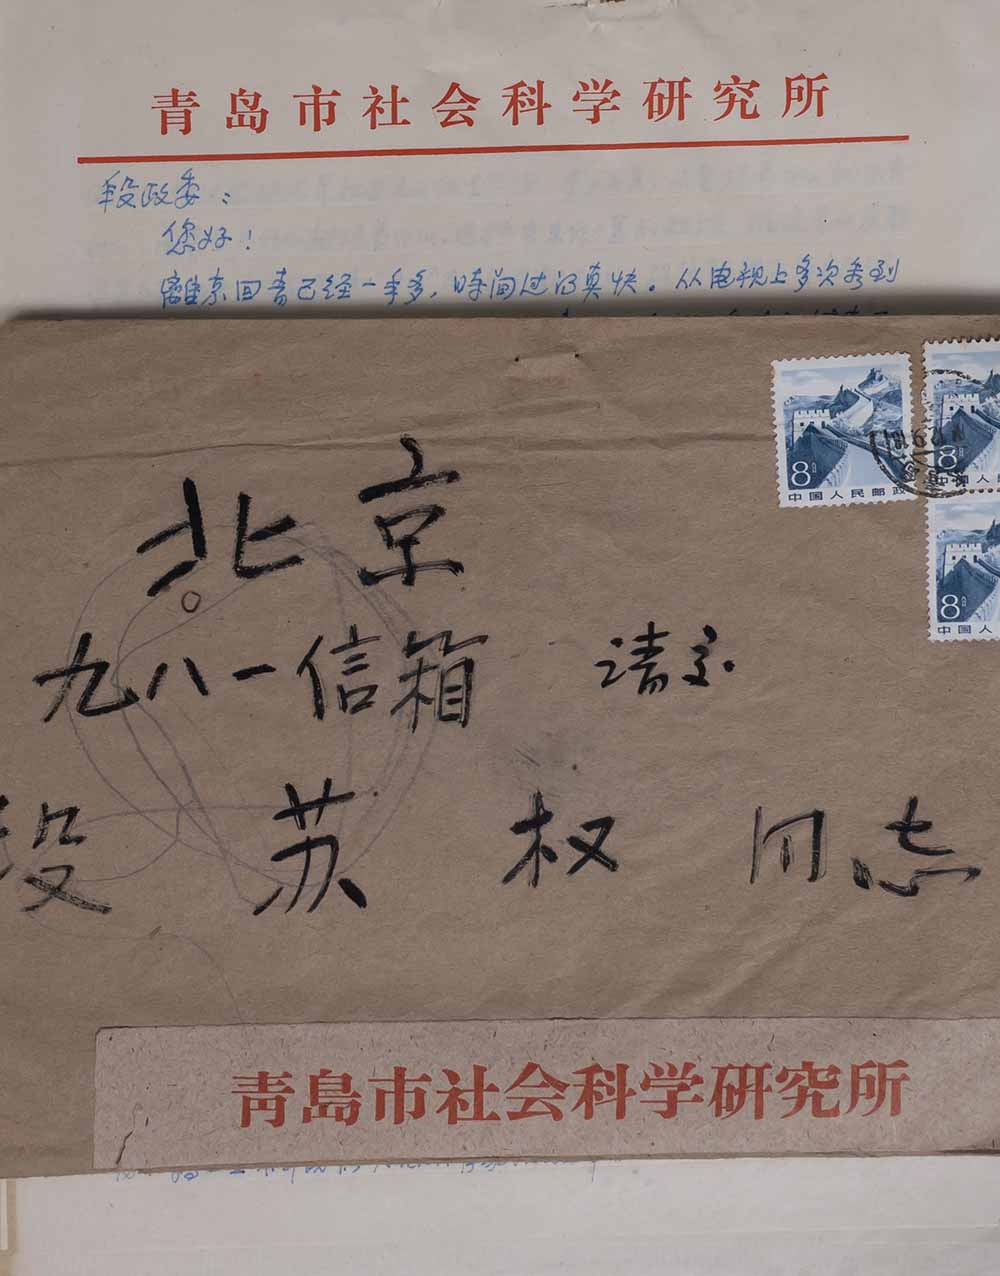 青岛市社会科学研究所
段政委：
您好！
離京回青已经一年多，时间过的真快。从电视上多次看到
8分
中国人民邮政
8分
中国人民
8分
中国人
北京
九八一信箱 请交
段苏权同志
青岛市社会科学研究所